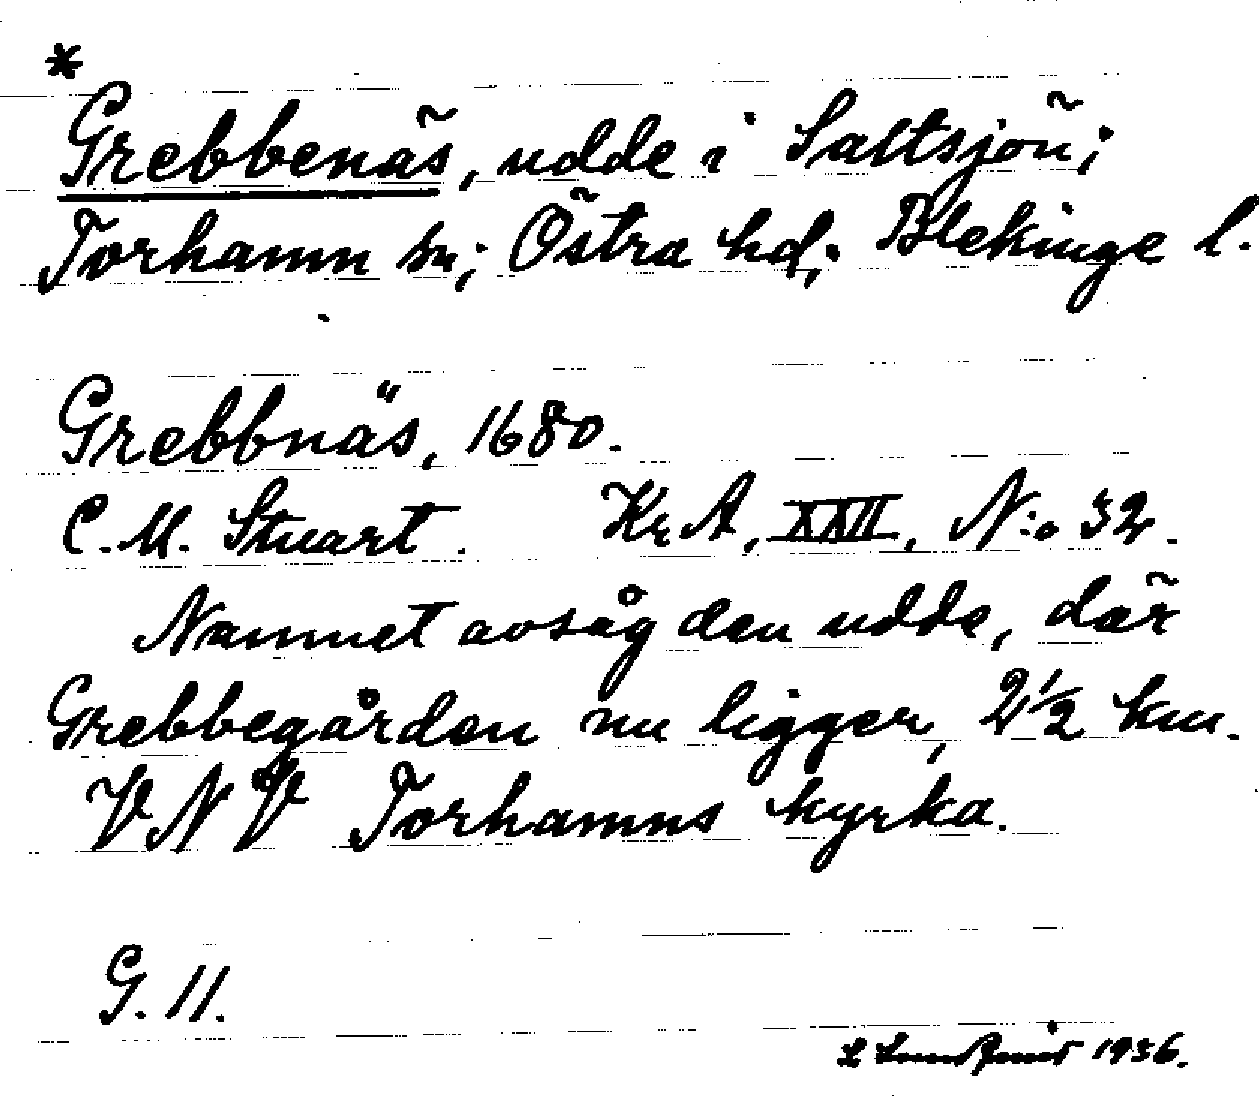 *
Grebbenäs, udde i Saltsjön;
Torhamn sn; Östra hd; Blekinge l.
Grebbnäs, 1680.
C. M. Stuart. KrA, XXII, N:o 32.
Namnet avsåg den udde, där
Grebbegården nu ligger, 2½ km.
VNV Torhamns kyrka.
G. 11.
1936.